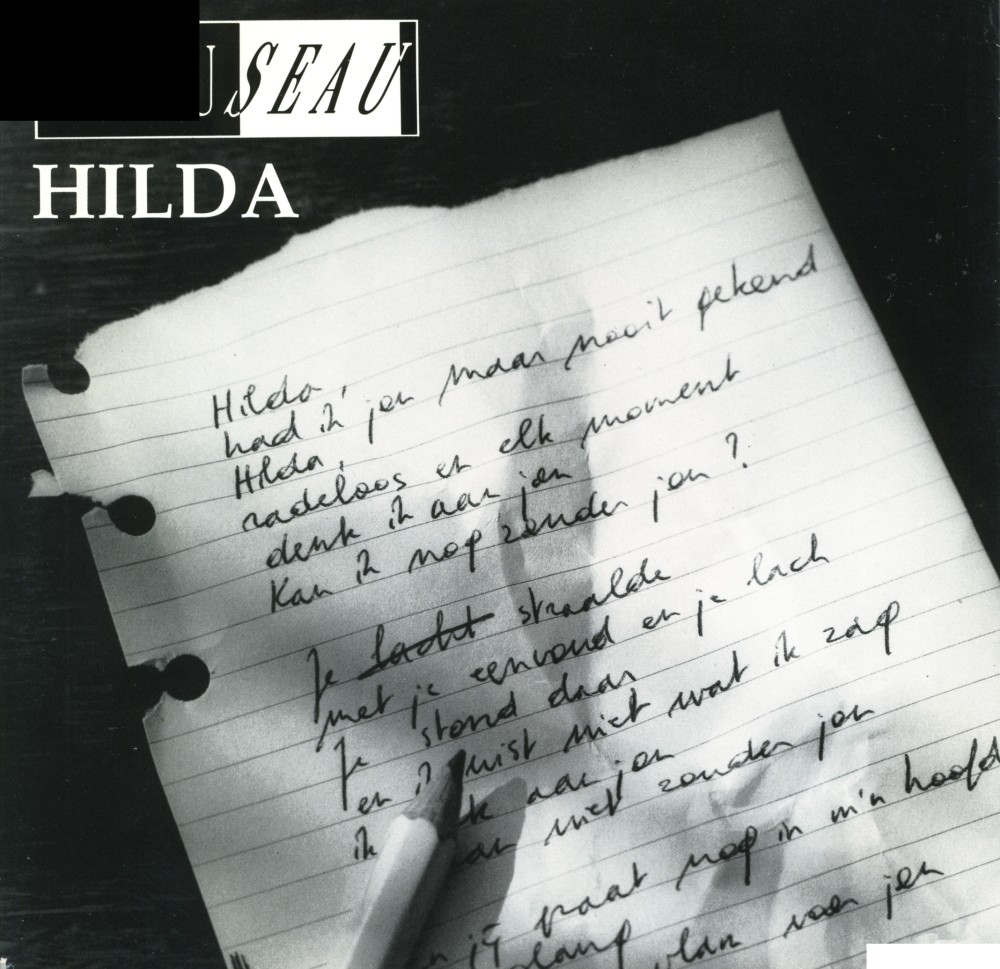 USEAU
HILDA
Hilda,
had ik jou maar nooit gekend
Hilda,
radeloos en elk moment
denk ik aan jou
Kan ik nog zonder jou?
Je lacht straalde
met je eenvoud en je lach
Je stond daar
en ik wist niet wat ik zag
ik aan jou
niet zonder jou
jij gaat nog in m'n hoofd
vlam voor jou